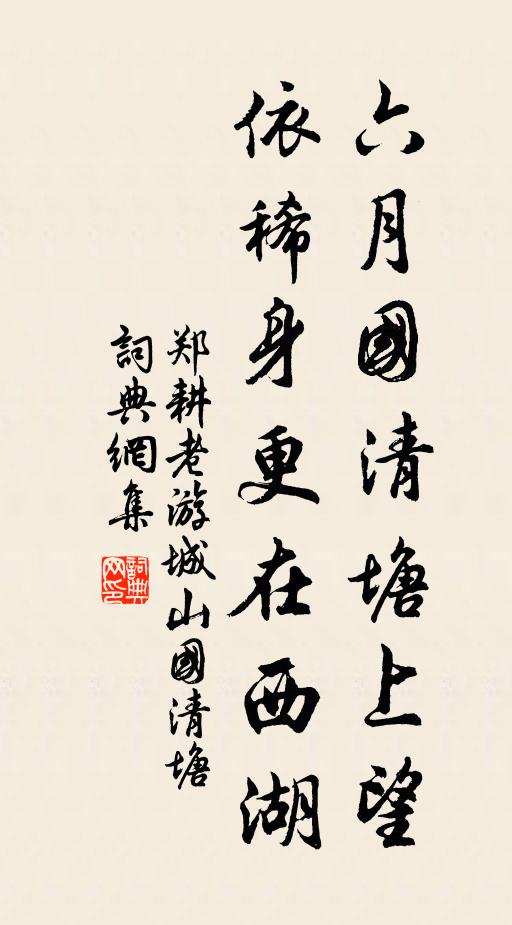 六月國清塘上望
依稀身更在西湖
郑耕老游城山國清塘
詞典網集
詞典網印